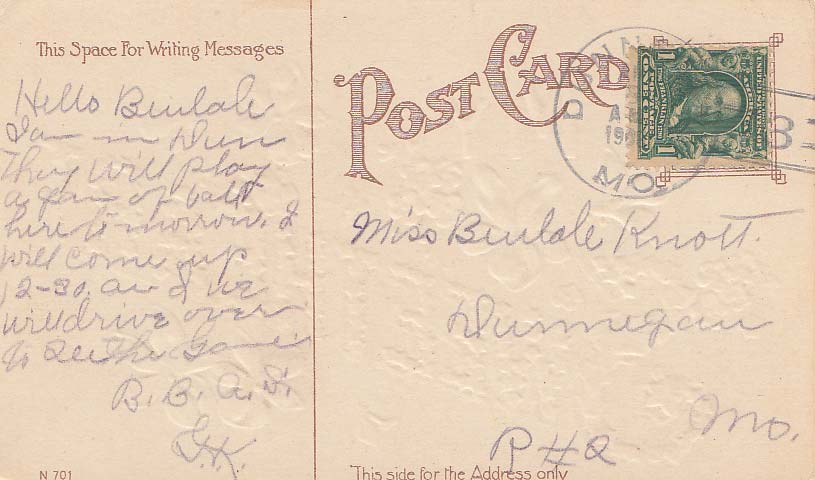 This Space For Writing Messages
Hello Beulale
I am in Dun
They will play
a gam of ball
here to morrow. I
will come up
12-30. and we
will drive over
to See the Game
B. B. A. D.
G.K.
N 701
POST CARD
DUNN
A
19
MO
B
1
1
Miss Beulale Knott.
Dunnegan
Mo.
R # 2
This side for the Address only